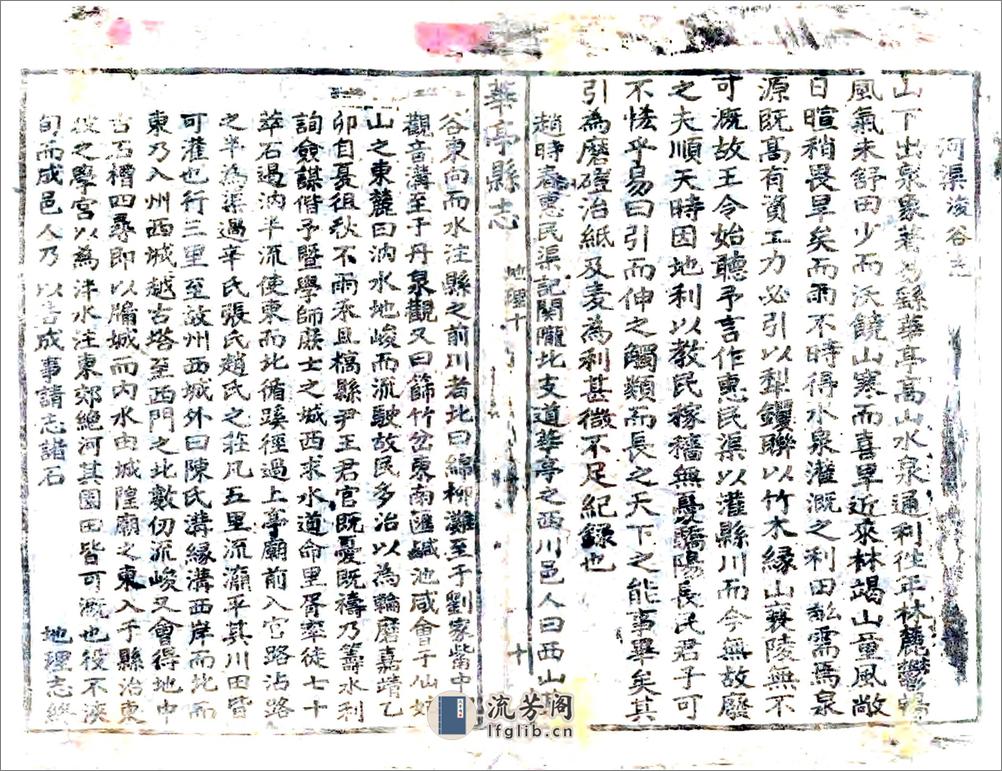 河渠浚谷志
山下出泉象著蒙繇華亭高山水泉通利往年林麓鬱
風氣未舒田少而沃饒山寒而喜旱近來林竭山童風敞
日暄稍畏旱矣而雨不時得水泉灌溉之利田訟需焉泉
源既高有資工力必引以犁钁聯以竹木緣山襄陵無不
可溉故王令始聽予言作惠民渠以灌縣川而今無故廢
之夫順天時因地利以教民稼穡無憂驕陽長民君子可
不恡乎易曰引而伸之觸類而長之天下之能事畢矣其
引為磨磑治紙及麦為利甚微不足紀錄也
趙時春惠民渠記關隴北支道華亭之西川邑人曰西山
華亭縣志
地理十
十
谷東向而水注縣之前川者北曰綿柳灘至于劉家嘴中曰
觀音溝至于丹泉觀又曰篩竹岔東南匯鹹池咸會于仙姑
山之東麓曰汭水地峻而流駛故民多冶以為輪磨嘉靖乙
卯自夏徂秋不雨禾且槁縣尹王君官既憂既禱乃籌水利
詢僉謀偕予暨學師庶士之城西求水道命里胥率徒七十
萃石遏汭半流使東而北循蹊徑過上亭廟前入官路沾路
之半為渠過辛氏張氏趙氏之莊凡五里流瀰平其川田皆
可灌也行三里至故州西城外曰陳氏溝緣溝西岸而北而
東乃入州西城越古塔至西門之北數仞流峻又會得地中
古石槽四尋即以牖城而內水由城隍廟之東入于縣治東
彼之學宮以為泮水注東郊絕河其園田皆可溉也役不浹
旬而成邑人乃以告成事請志諸石
地理志終
流芳阁
lfglib.cn